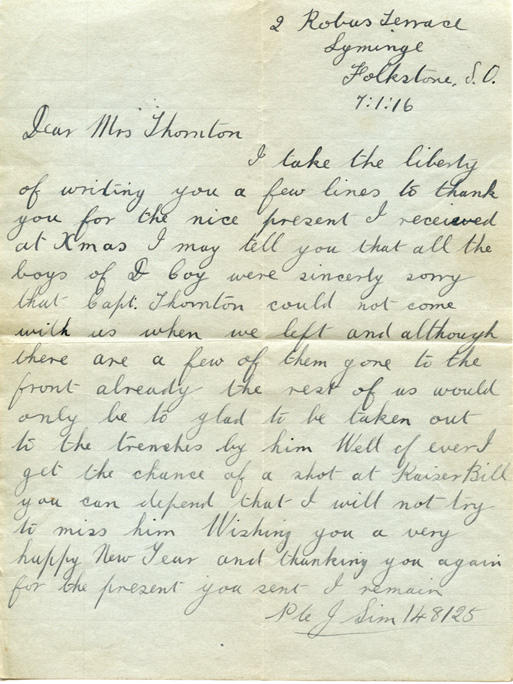 2 Robus Terrace
Lyminge
Folkstone, S.O.
7:1:16
Dear Mrs Thornton
I take the liberty
of writing you a few lines to thank
you for the nice present I receieved
at Xmas I may tell you that all the
boys of D Coy were sincerly sorry
that Capt. Thornton could not come
with us when we left and although
there are a few of them gone to the
front already the rest of us would
only be to glad to be taken out
to the trenches by him Well if ever I
get the chance of a shot at Kaiser Bill
you can depend that I will not try
to miss him Wishing you a very
happy New Year and thanking you again
for the present you sent I remain
Pte J Sim 148125